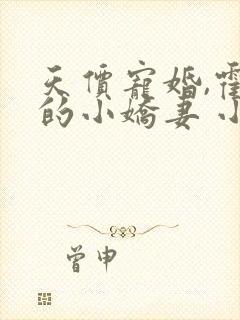 天價寵婚,霍
的小嬌妻 小
曾申